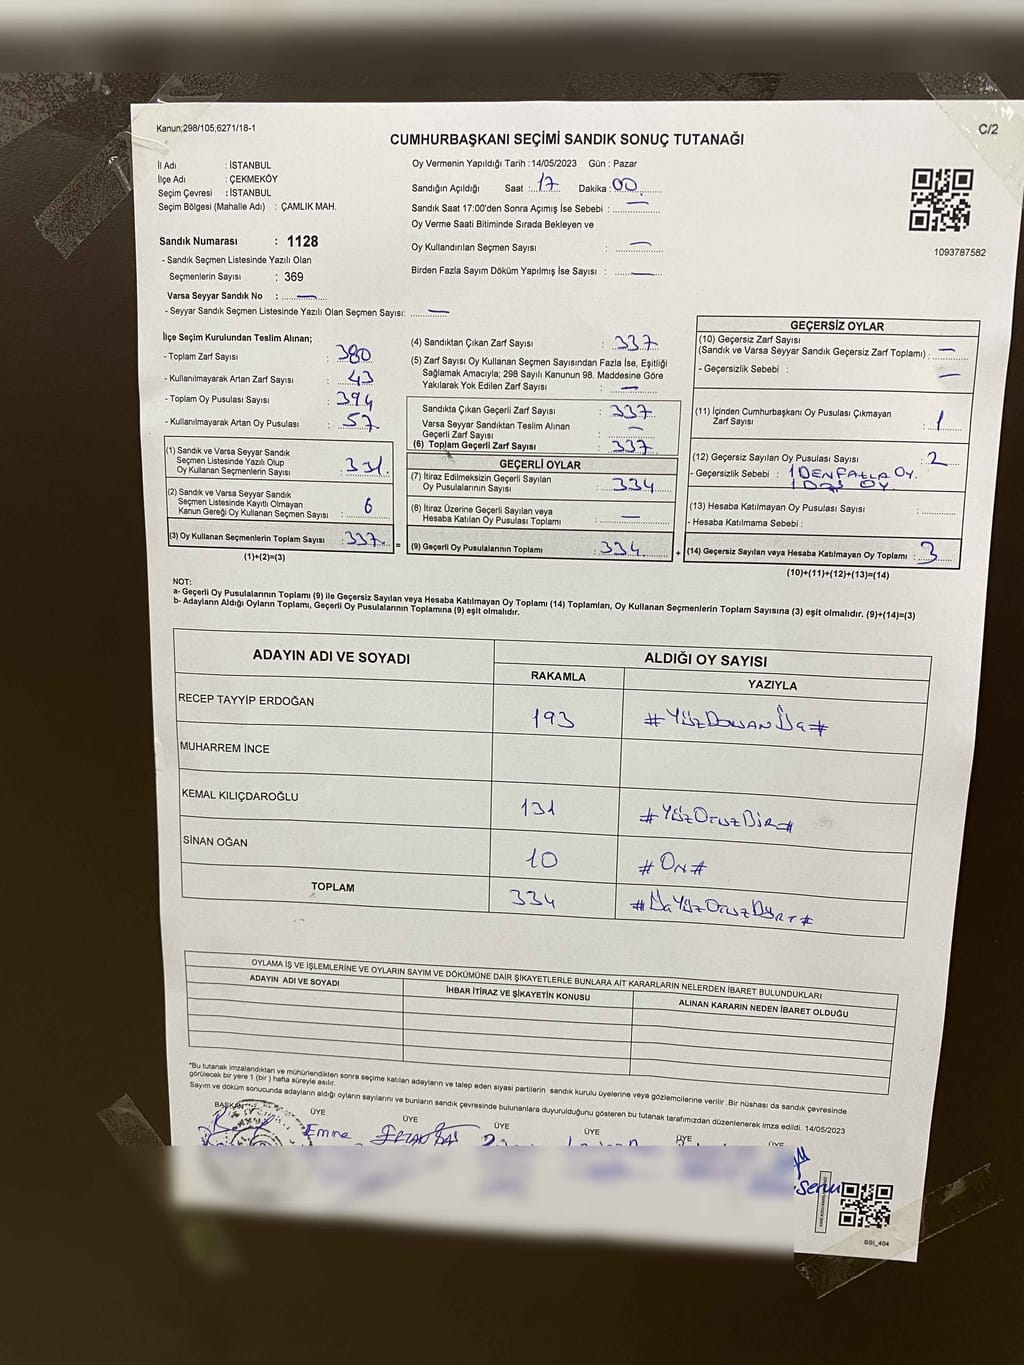 Kanun;298/105,6271/18-1
C/2
CUMHURBAŞKANI SEÇİMİ SANDIK SONUÇ TUTANAĞI
İl Adı : İSTANBUL
İlçe Adı : ÇEKMEKÖY
Seçim Çevresi : İSTANBUL
Seçim Bölgesi (Mahalle Adı) : ÇAMLIK MAH.
Oy Vermenin Yapıldığı Tarih : 14/05/2023 Gün : Pazar
Sandığın Açıldığı Saat : 17 Dakika : 00
Sandık Saat 17:00'den Sonra Açımış İse Sebebi : —
Oy Verme Saati Bitiminde Sırada Bekleyen ve
Oy Kullandırılan Seçmen Sayısı : —
Birden Fazla Sayım Döküm Yapılmış İse Sayısı : —
1093787582
Sandık Numarası : 1128
- Sandık Seçmen Listesinde Yazılı Olan
Seçmenlerin Sayısı : 369
Varsa Seyyar Sandık No : —
- Seyyar Sandık Seçmen Listesinde Yazılı Olan Seçmen Sayısı: —
İlçe Seçim Kurulundan Teslim Alınan;
- Toplam Zarf Sayısı : 380
- Kullanılmayarak Artan Zarf Sayısı : 43
- Toplam Oy Pusulası Sayısı : 394
- Kullanılmayarak Artan Oy Pusulası : 57
(1) Sandık ve Varsa Seyyar Sandık
Seçmen Listesinde Yazılı Olup
Oy Kullanan Seçmenlerin Sayısı : 331
(2) Sandık ve Varsa Seyyar Sandık
Seçmen Listesinde Kayıtlı Olmayan
Kanun Gereği Oy Kullanan Seçmen Sayısı : 6
(3) Oy Kullanan Seçmenlerin Toplam Sayısı : 337
(1)+(2)=(3)
(4) Sandıktan Çıkan Zarf Sayısı : 337
(5) Zarf Sayısı Oy Kullanan Seçmen Sayısından Fazla İse, Eşitliği
Sağlamak Amacıyla; 298 Sayılı Kanunun 98. Maddesine Göre
Yakılarak Yok Edilen Zarf Sayısı : —
Sandıkta Çıkan Geçerli Zarf Sayısı : 337
Varsa Seyyar Sandıktan Teslim Alınan
Geçerli Zarf Sayısı : —
(6) Toplam Geçerli Zarf Sayısı : 337
GEÇERLİ OYLAR
(7) İtiraz Edilmeksizin Geçerli Sayılan
Oy Pusulalarının Sayısı : 334
(8) İtiraz Üzerine Geçerli Sayılan veya
Hesaba Katılan Oy Pusulası Toplamı : —
= (9) Geçerli Oy Pusulalarının Toplamı : 334
GEÇERSİZ OYLAR
(10) Geçersiz Zarf Sayısı
(Sandık ve Varsa Seyyar Sandık Geçersiz Zarf Toplamı) : —
- Geçersizlik Sebebi : —
(11) İçinden Cumhurbaşkanı Oy Pusulası Çıkmayan
Zarf Sayısı : 1
(12) Geçersiz Sayılan Oy Pusulası Sayısı : 2
- Geçersizlik Sebebi : 1 DEN FAZLA OY.
1 BOŞ OY
(13) Hesaba Katılmayan Oy Pusulası Sayısı :
- Hesaba Katılmama Sebebi :
+ (14) Geçersiz Sayılan veya Hesaba Katılmayan Oy Toplamı : 3
(10)+(11)+(12)+(13)=(14)
NOT:
a- Geçerli Oy Pusulalarının Toplamı (9) ile Geçersiz Sayılan veya Hesaba Katılmayan Oy Toplamı (14) Toplamları, Oy Kullanan Seçmenlerin Toplam Sayısına (3) eşit olmalıdır. (9)+(14)=(3)
b- Adayların Aldığı Oyların Toplamı, Geçerli Oy Pusulalarının Toplamına (9) eşit olmalıdır.
ADAYIN ADI VE SOYADI ALDIĞI OY SAYISI
RAKAMLA YAZIYLA
RECEP TAYYİP ERDOĞAN 193 #YüzDoksanÜç#
MUHARREM İNCE
KEMAL KILIÇDAROĞLU 131 #YüzOtuzBir#
SİNAN OĞAN 10 #On#
TOPLAM 334 #ÜçYüzOtuzDört#
OYLAMA İŞ VE İŞLEMLERİNE VE OYLARIN SAYIM VE DÖKÜMÜNE DAİR ŞİKAYETLERLE BUNLARA AİT KARARLARIN NELERDEN İBARET BULUNDUKLARI
ADAYIN ADI VE SOYADI İHBAR İTİRAZ VE ŞİKAYETİN KONUSU ALINAN KARARIN NEDEN İBARET OLDUĞU
*Bu tutanak imzalandıktan ve mühürlendikten sonra seçime katılan adayların ve talep eden siyasi partilerin sandık kurulu üyelerine veya gözlemcilerine verilir. Bir nüshası da sandık çevresinde
görülecek bir yere 1 (bir) hafta süreyle asılır.
Sayım ve döküm sonucunda adayların aldığı oyların sayılarını ve bunların sandık çevresinde bulunanlara duyurulduğunu gösteren bu tutanak tarafımızdan düzenlenerek imza edildi. 14/05/2023
BAŞKAN ÜYE ÜYE ÜYE ÜYE ÜYE ÜYE
Emne
GSI_404